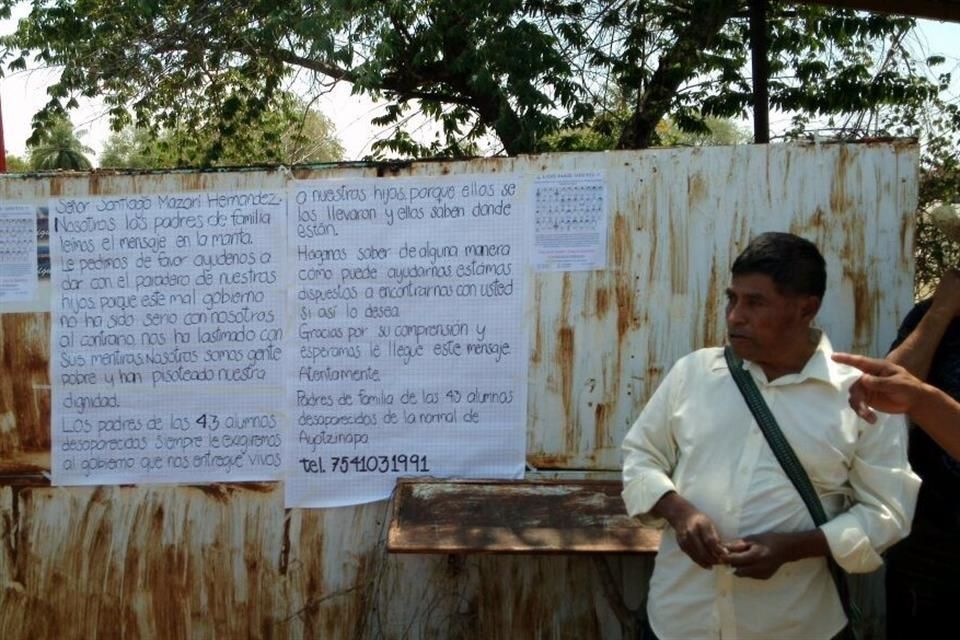 Señor Santiago Mazari Hernandez.
Nosotros los padres de familia
leimos el mensaje en la manta.
Le pedimos de favor ayudenos a
dar con el paradero de nuestros
hijos, porque este mal gobierno
no ha sido serio con nosotros
al contrario, nos ha lastimado con
sus mentiras. Nosotros somos gente
pobre y han pisoteado nuestra
dignidad.
Los padres de los 43 alumnos
desaparecidos siempre le exagiremos
al gobierno que nos entregue vivos
a nuestros hijos, porque ellos se
los llevaron y ellos saben donde
están.
Haganos saber de alguna manera
cómo puede ayudarnos estamos
dispuestos a encontrarnos con usted
si asi lo desea.
Gracias por su comprensión y
esperamos le llegue este mensaje.
Atentamente.
Padres de familia de los 43 alumnos
desaparecidos de la normal de
Ayotzinapa
tel. 7541031991